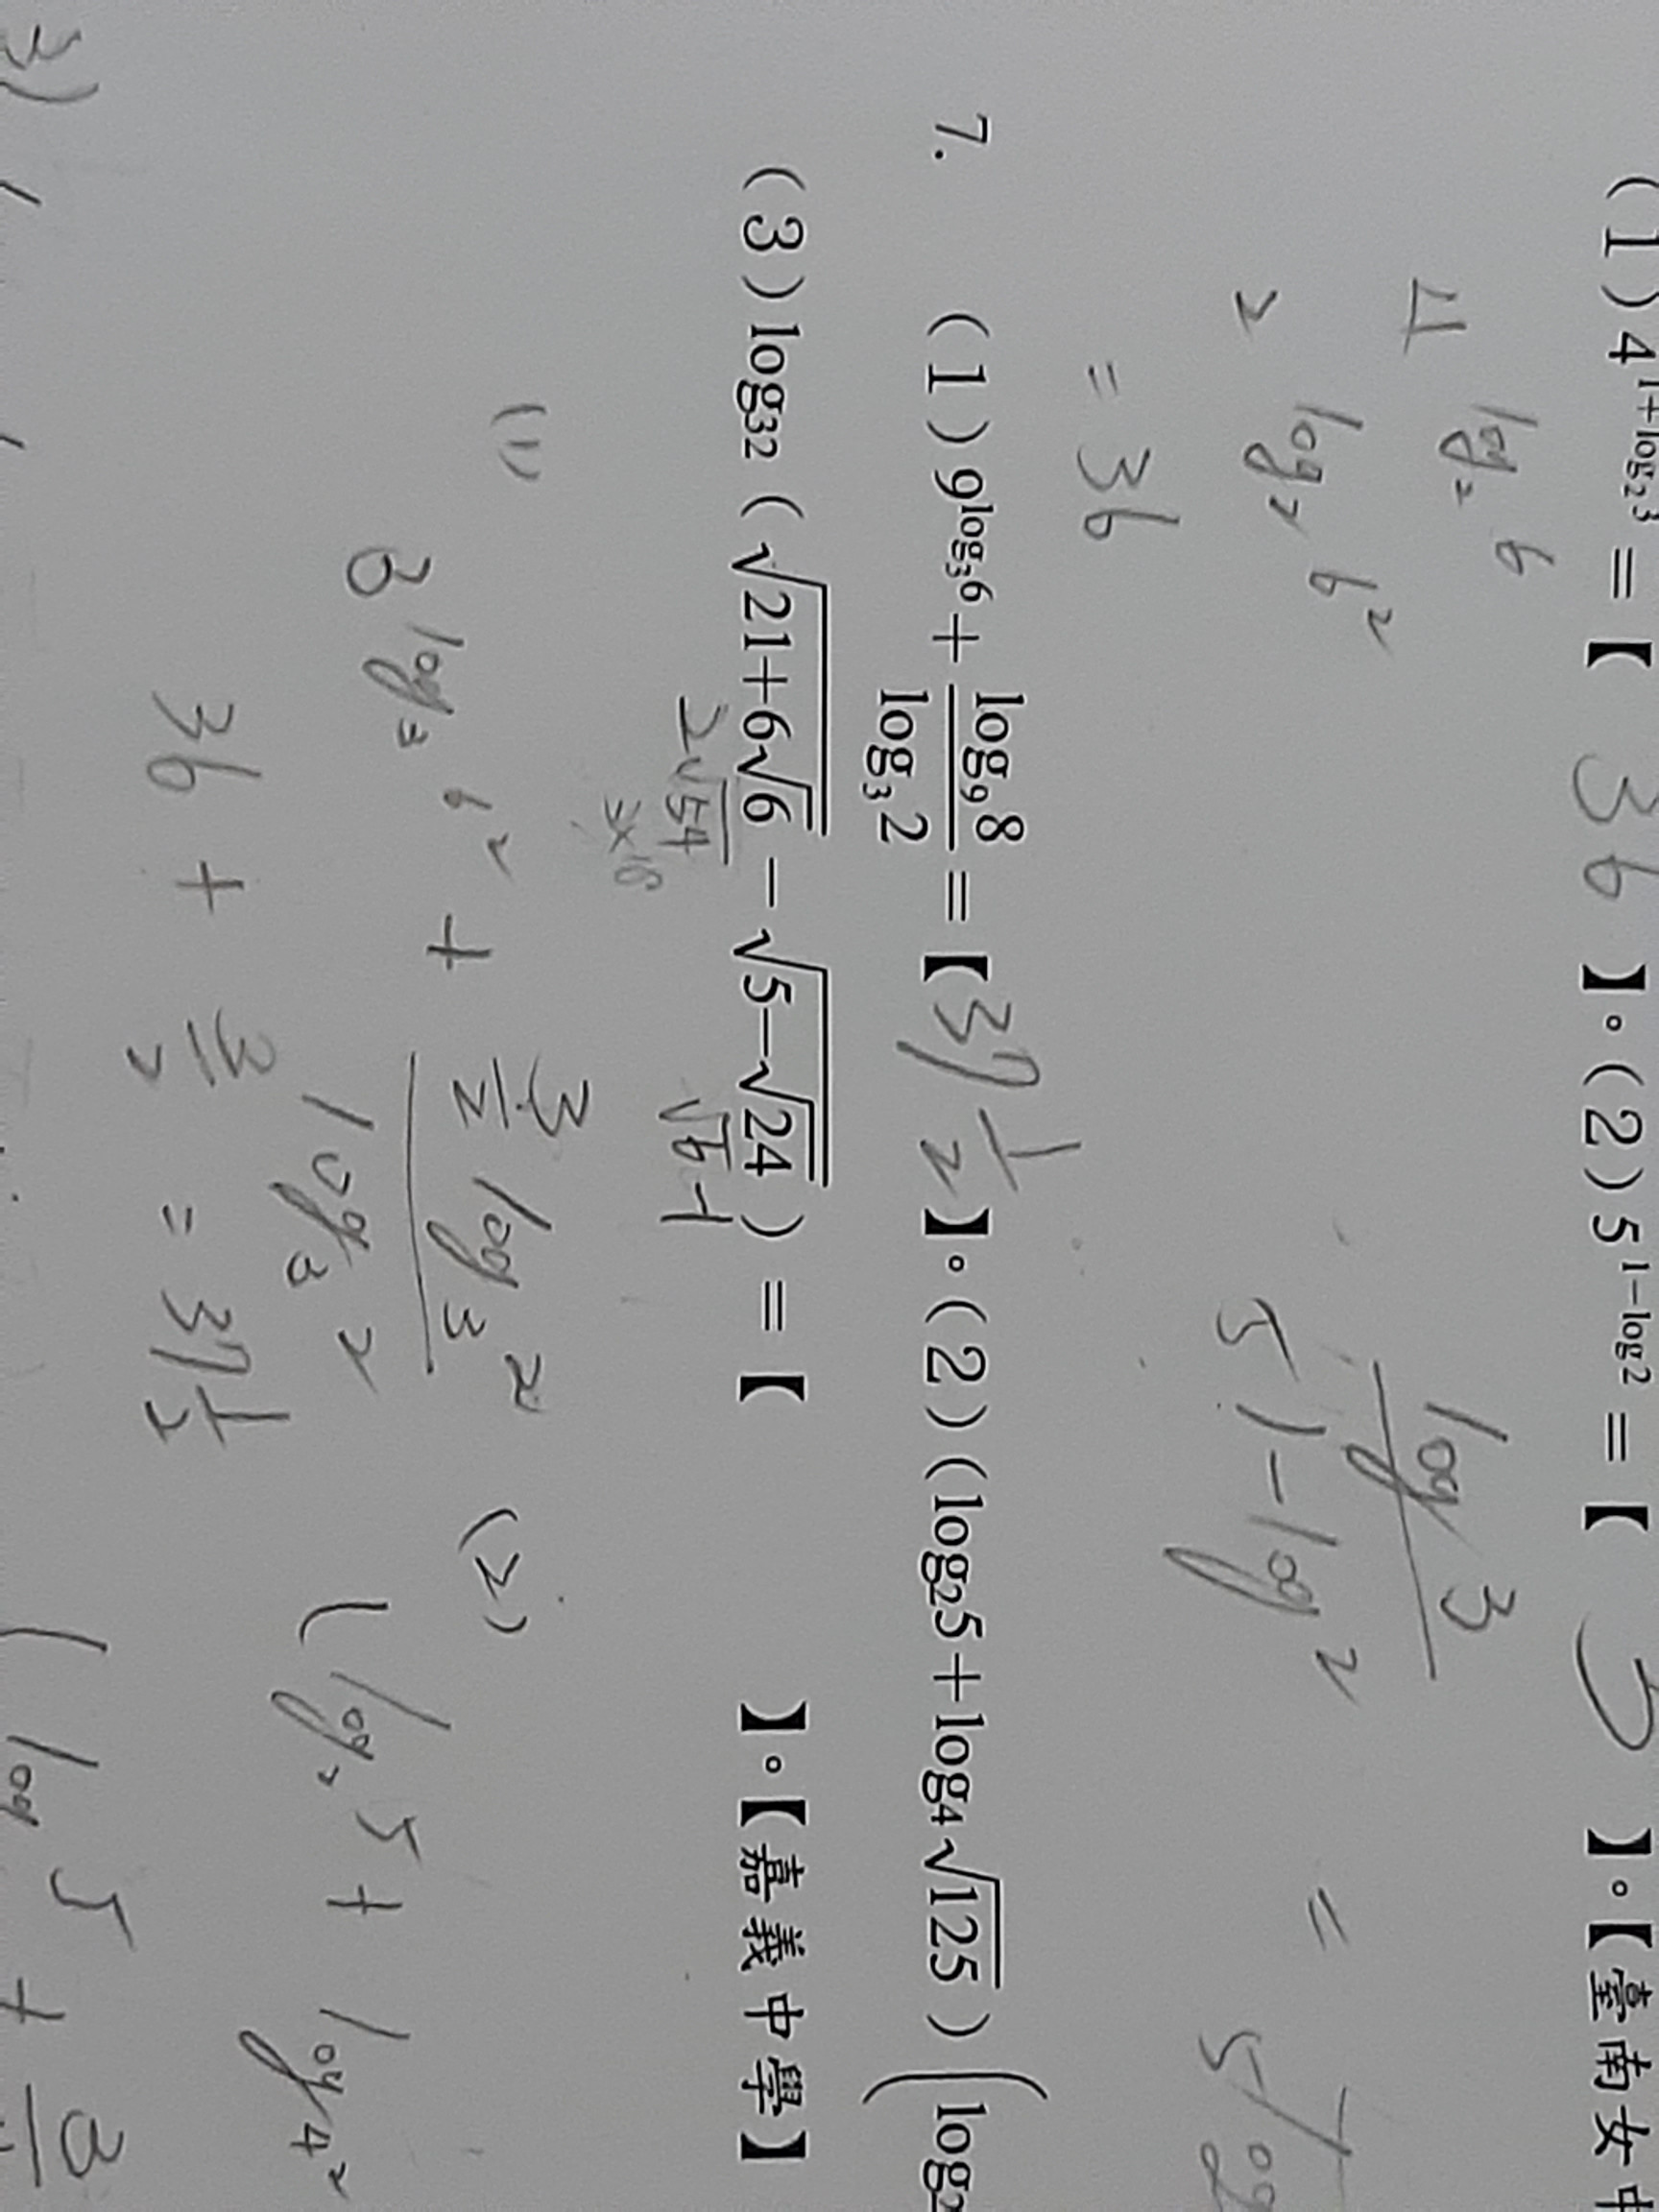 (1) 4^{1+log₂3} =【 36 】。(2) 5^{1-log2} =【 5 】。【臺南女中
4^{log₂6}
2^{log₂6²}
= 36
log 3
5^{1-log2} =
7. (1) 9^{log₃6} + \frac{log₉8}{log₃2} =【37 1/2】。(2) (log₂5+log₄√125)(log₂
(3) log₃₂(√(21+6√6) - √(5-√24)) =【 】。【嘉義中學】
2√54 √6 -1
3×18
(1) 3^{log₃6²} + \frac{\frac{3}{2} log₃2}{log₃2}
36 + \frac{3}{2} = 37\frac{1}{2}
(2) (log₂5 + log₄²
3)
(log 5 + 3